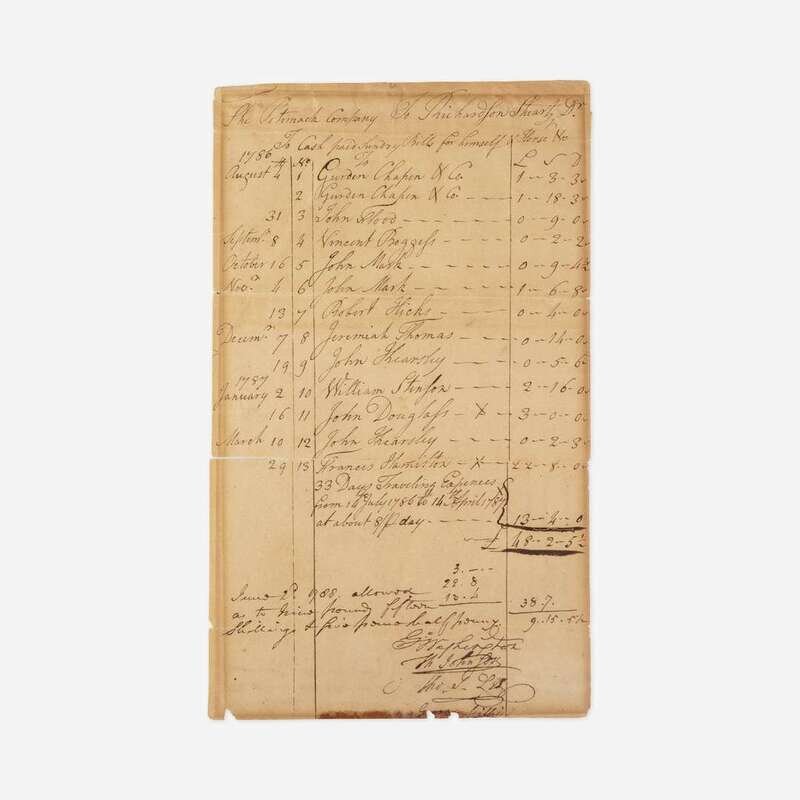 The Potomack Company To Richardson Steuart Dr
To Cash paid Sundry Bills for himself & Horse &c
1786 No To L S D
August 4 1 Gurden Chapin & Co 1 -- 3 - 3
2 Gurden Chapin & Co - 1 -- 18 - 3
31 3 John Flood - - - - 0 -- 9 - 0
Septemr 8 4 Vincent Boggess - - - - 0 -- 2 - 2
October 16 5 John Mark - - - - - 0 -- 9 - 4½
Novr 4 6 John Mark - - - - 1 -- 6 - 8
13 7 Robert Hicks - - - - 0 -- 4 - 0
Decemr 7 8 Jeremiah Thomas - - - 0 -- 14 - 0
19 9 John Kearsley - - - - 0 -- 5 - 6
1787
January 2 10 William Stinson - - - 2 -- 16 - 0
16 11 John Douglass - X - 3 -- 0 - 0
March 10 12 John Kearsley - - - 0 -- 2 - 3
29 13 Frances Hamilton - X - 22 - 8 - 0
33 Days Traveling Expences
from 14th July 1786 to 14th April 1787
at about 8/ P day - - - - 13 -- 4 -- 0
£ 48 -- 2 -- 5½
3. - --
22. 8
June 2d 1788. allowed 13. 4
as to nine pound fifteen 38. 7.
Shillings & five pence half penny 9. 15. 5½
Go Washington
Th Johnson
Tho. S. Lee